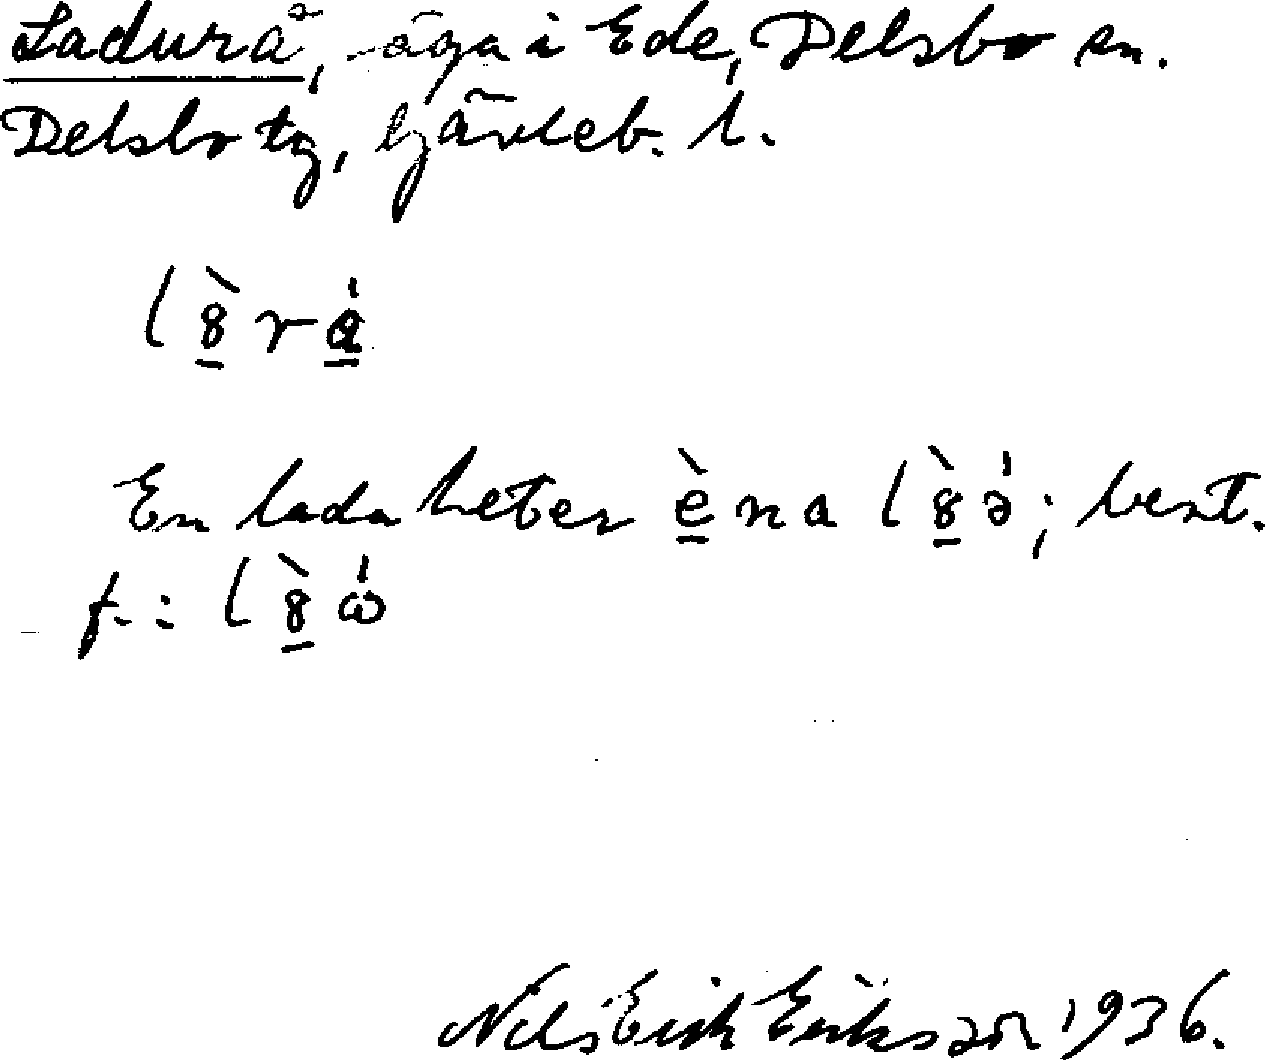 Ladurå, äga i Ede, Delsbo sn.
Delsbo tg, Gävleb. l.
l8̲̀rá̲
En lada heter è̲na l8̲̀ə́; best.
f.: l8̲̀ώ
Nils Erik Eriksson 1936.